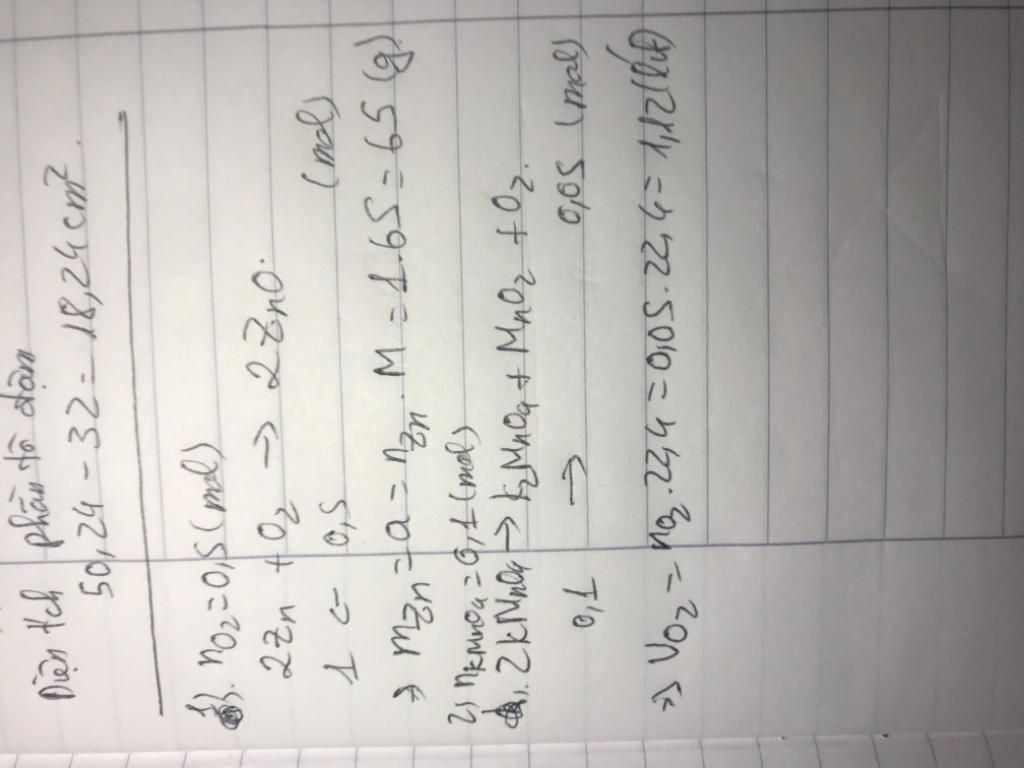 Diện tích phần tô đậm
50,24 - 32 = 18,24 cm².
1). nO₂ = 0,5 (mol)
2Zn + O₂ → 2ZnO.
1 ← 0,5 (mol)
→ mZn = a = nZn . M = 1.65 = 65 (g)
2, nKMnO₄ = 0,1 (mol)
2KMnO₄ → K₂MnO₄ + MnO₂ + O₂.
0,1 → 0,05 (mol)
→ VO₂ = nO₂ . 22,4 = 0,05 . 22,4 = 1,12 (lít)